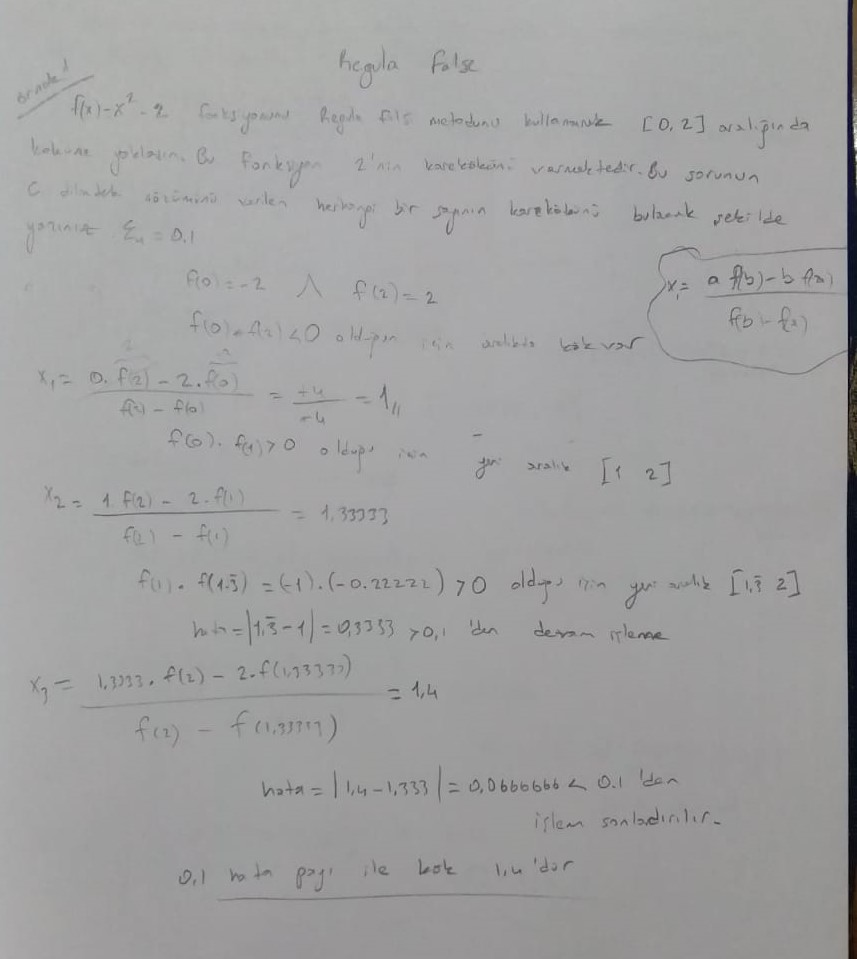 Regula Falsi
örnek 1
f(x) - x² - 2 fonksiyonunu Regula falsi metodunu kullanarak [0, 2] aralığında
köküne yaklaşın. Bu fonksiyon 2'nin karekökünü vermektedir. Bu sorunun
C dilindeki çözümünü verilen herhangi bir sayının karekökünü bulacak şekilde
yazınız Ɛ = 0.1
x₁ = a f(b) - b f(a) / f(b) - f(a)
f(0) = -2 ∧ f(2) = 2
f(0) . f(2) < 0 olduğu için aralıkta kök var
x₁ = 0. f(2) - 2. f(0) / f(2) - f(0) = +4 / -4 = 1,,
f(0). f(1) > 0 olduğu için yeni aralık [1 2]
x₂ = 1. f(2) - 2. f(1) / f(2) - f(1) = 1,33333
f(1). f(1.3̄) = (-1).(-0.22222) > 0 olduğu için yeni aralık [1,3̄ 2]
hata = |1,3̄ - 1| = 0,3333 > 0,1 'den devam işleme
x₃ = 1,3333. f(2) - 2. f(1,33333) / f(2) - f(1,33333) = 1,4
hata = |1,4 - 1,333| = 0,0666666 < 0.1 'den
işlem sonladırılır.
0,1 hata payı ile kök 1,4'dür